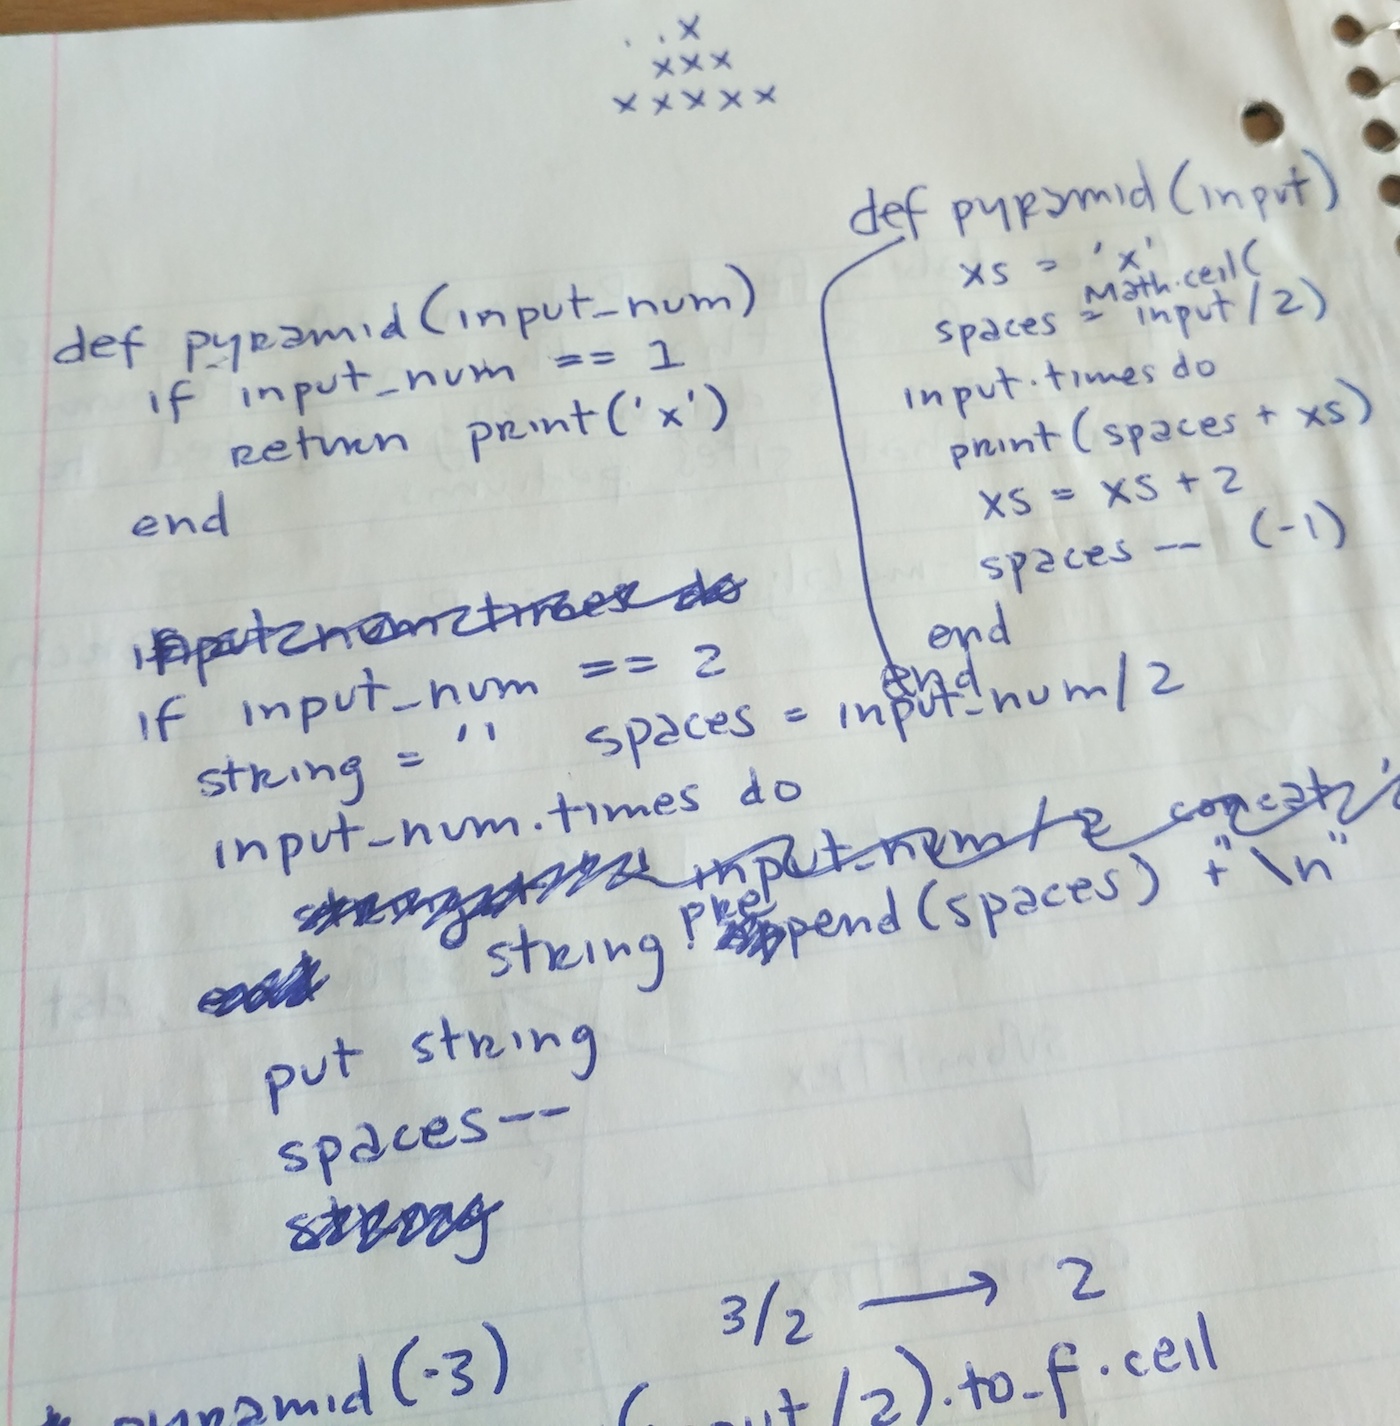 . . x
x x x
x x x x x
def pyramid(input_num)
if input_num == 1
return print('x')
end
if input_num == 2
string = '' spaces = input_num/2
input_num.times do
string.prepend(spaces) + "\n"
put string
spaces--
string
def pyramid(input)
xs = 'x'
Math.ceil(
spaces = input/2)
input.times do
print(spaces + xs)
xs = xs + 2
spaces -- (-1)
end
end
3/2 → 2
pyramid(-3)
/2).to_f.ceil